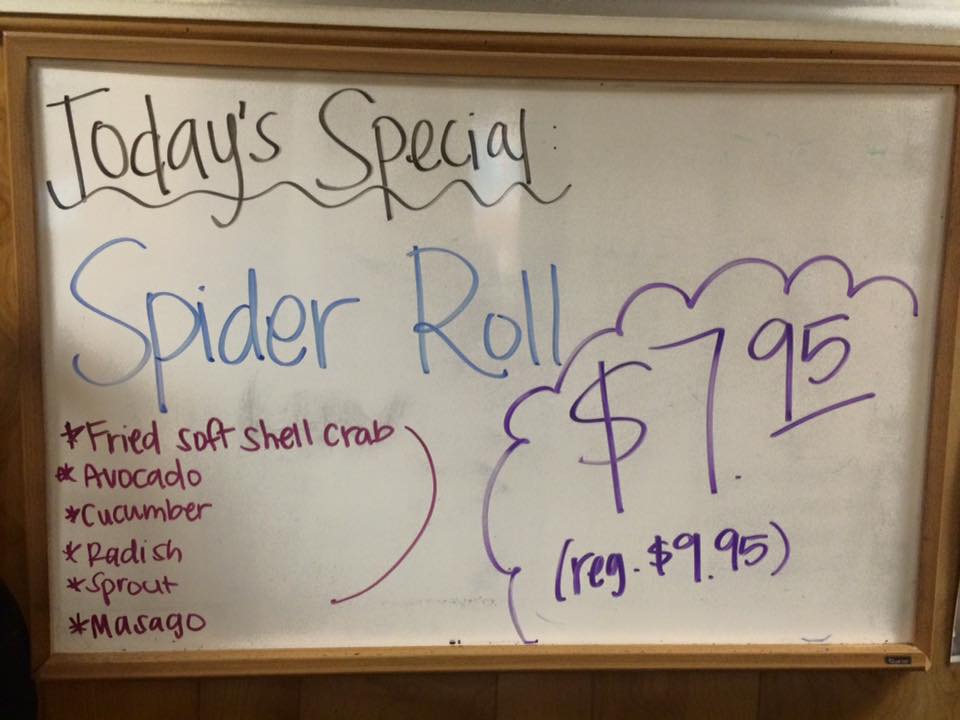 Today's Special:
Spider Roll
$7.95
(reg. $9.95)
*Fried soft shell crab
*Avocado
*Cucumber
*Radish
*Sprout
*Masago